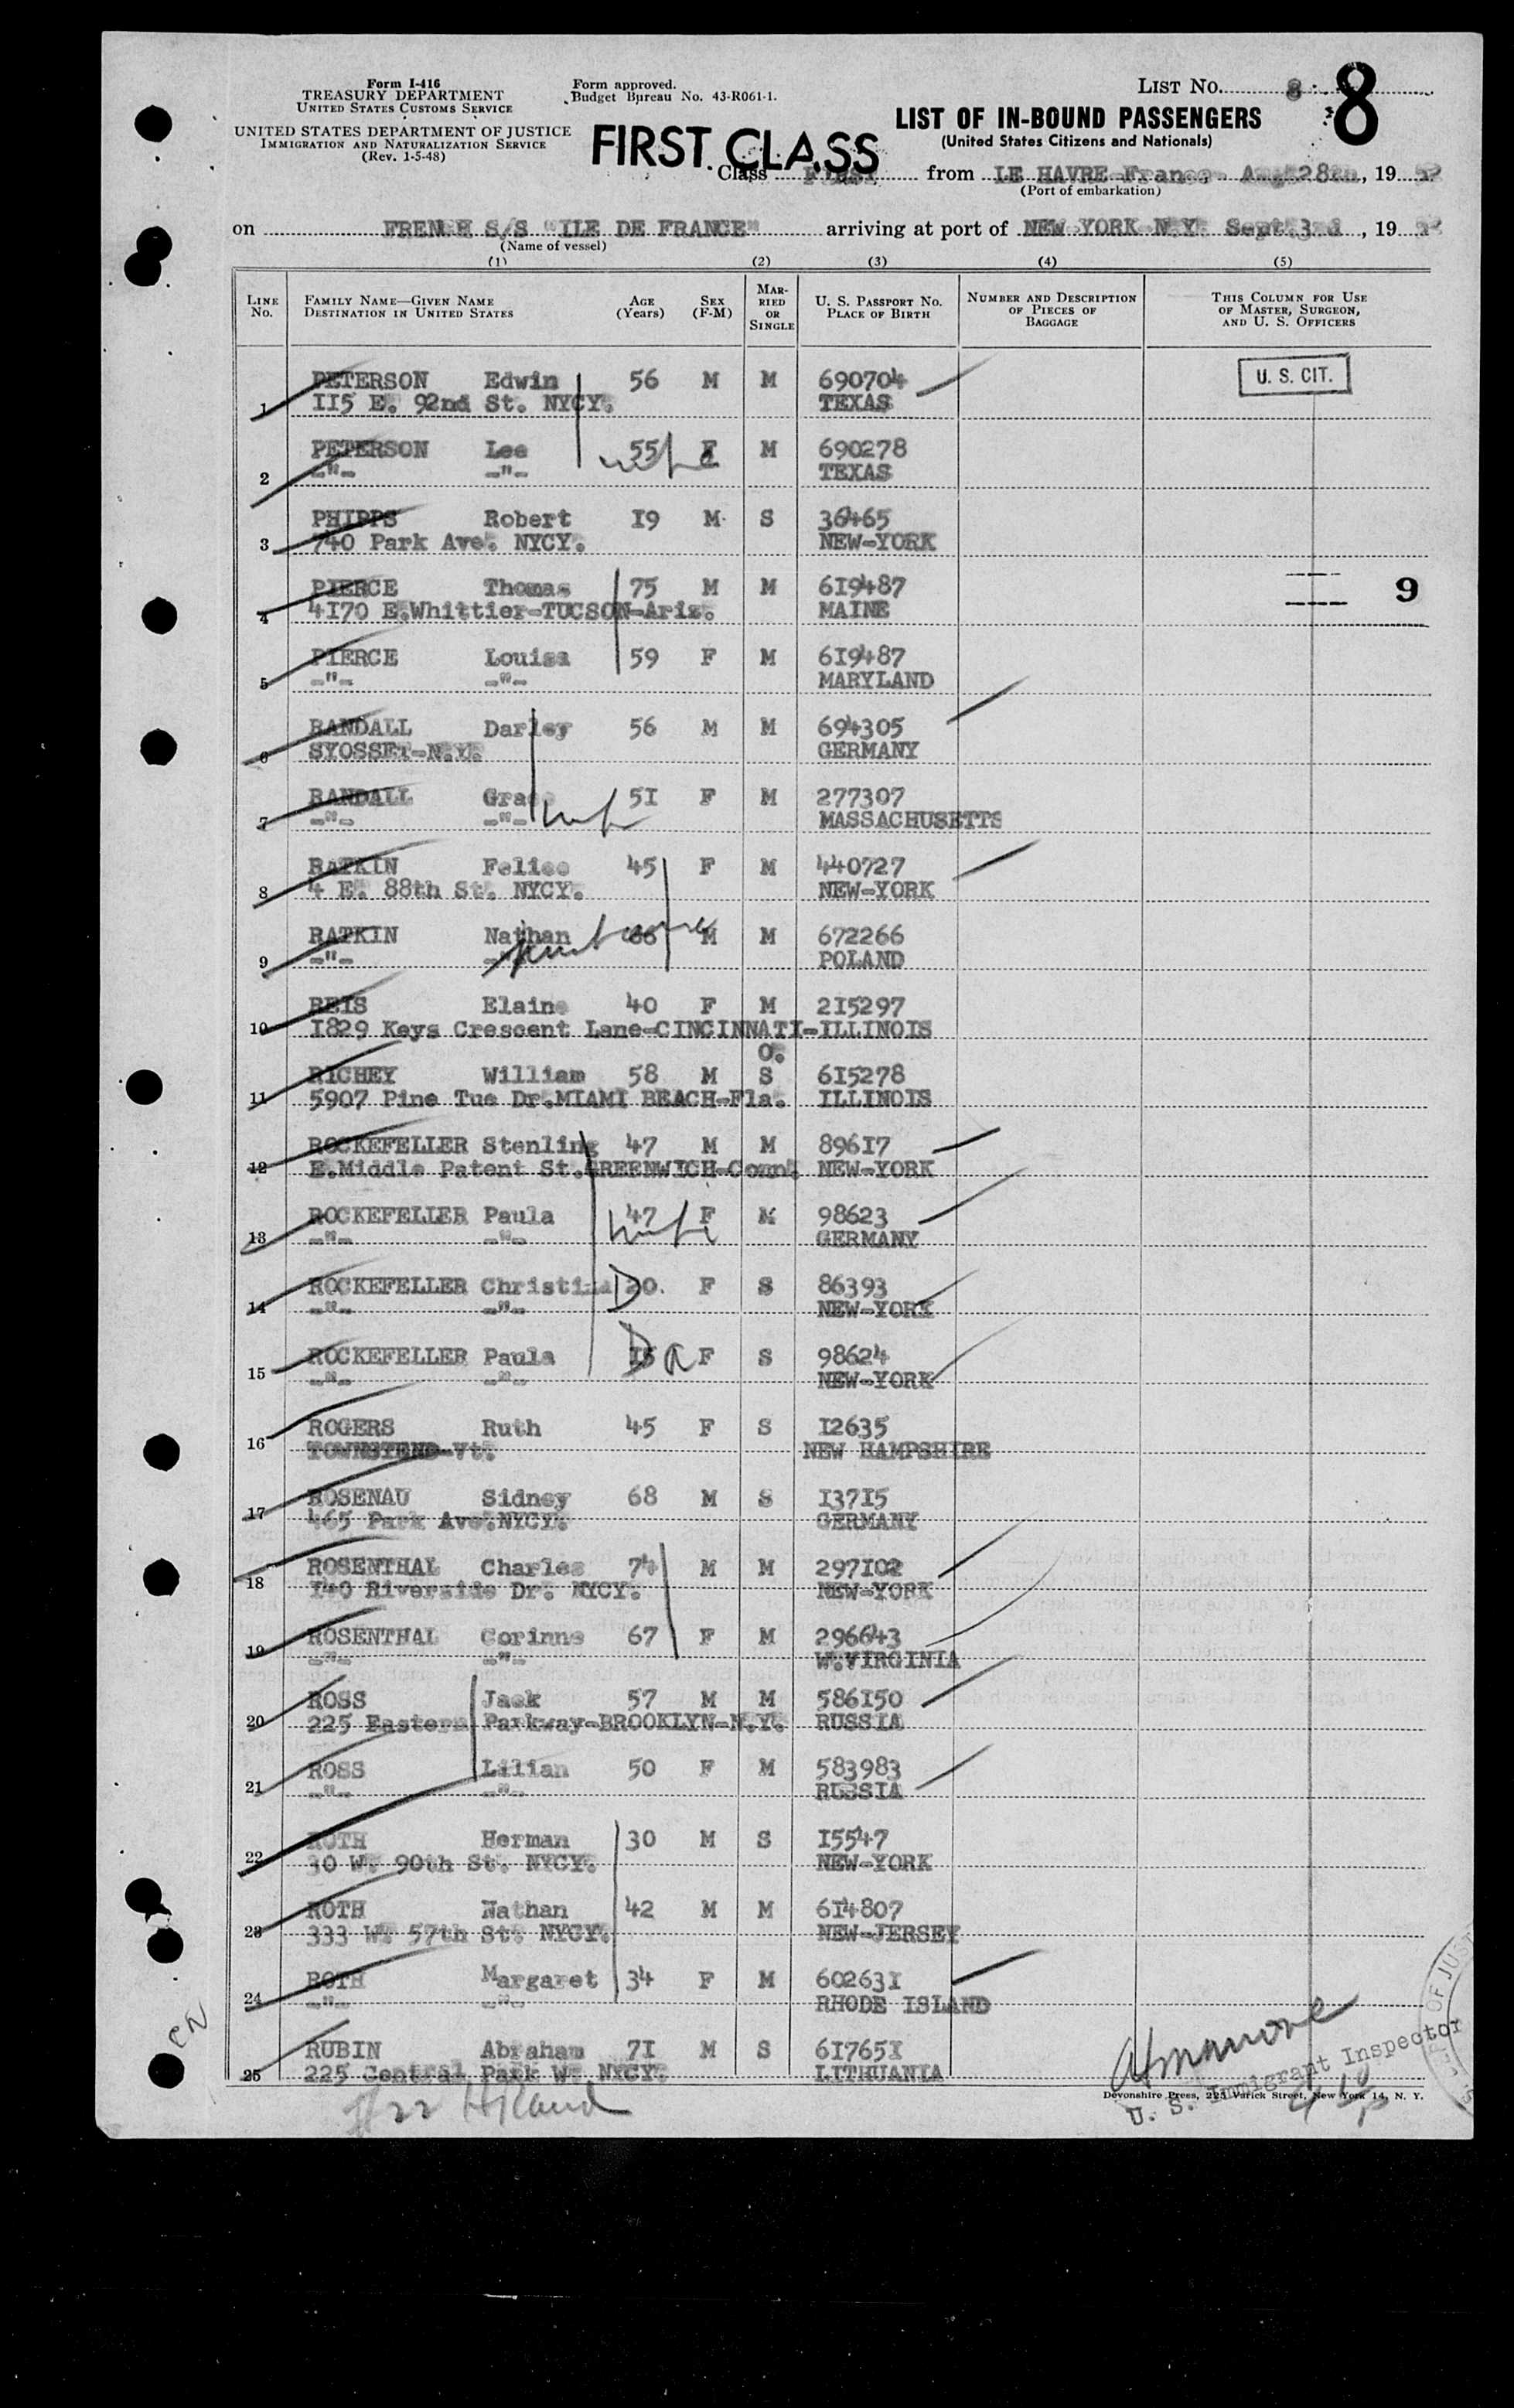 Form I-416
TREASURY DEPARTMENT
UNITED STATES CUSTOMS SERVICE
UNITED STATES DEPARTMENT OF JUSTICE
IMMIGRATION AND NATURALIZATION SERVICE
(Rev. 1-5-48)
Form approved.
Budget Bureau No. 43-R061-1.
LIST No. 8
8
LIST OF IN-BOUND PASSENGERS
(United States Citizens and Nationals)
FIRST CLASS
Class First from LE HAVRE-France, Aug. 28th, 1952
(Port of embarkation)
on FRENCH S/S "ILE DE FRANCE" arriving at port of NEW YORK N.Y. Sept. 3rd, 1952
(Name of vessel)
(1) (2) (3) (4) (5)
LINE No. FAMILY NAME—GIVEN NAME DESTINATION IN UNITED STATES AGE (Years) SEX (F-M) MARRIED OR SINGLE U. S. PASSPORT No. PLACE OF BIRTH NUMBER AND DESCRIPTION OF PIECES OF BAGGAGE THIS COLUMN FOR USE OF MASTER, SURGEON, AND U. S. OFFICERS
PETERSON Edwin 56 M M 690704 U. S. CIT.
1 115 E. 92nd St. NYCY. TEXAS
PETERSON Lee 55 F M 690278
wife
2 -"- -"- TEXAS
PHIPPS Robert 19 M S 36465
3 740 Park Ave. NYCY. NEW-YORK
PIERCE Thomas 75 M M 619487 9
4 4170 E.Whittier-TUCSON-Ariz. MAINE
PIERCE Louisa 59 F M 619487
5 -"- -"- MARYLAND
RANDALL Darley 56 M M 694305
6 SYOSSET-N.Y. GERMANY
RANDALL Grace 51 F M 277307
7 -"- -"- wife MASSACHUSETTS
RATKIN Felice 45 F M 440727
8 4 E. 88th St. NYCY. NEW-YORK
RATKIN Nathan M M 672266
9 -"- POLAND
REIS Elaine 40 F M 215297
10 1829 Keys Crescent Lane-CINCINNATI-ILLINOIS
O.
RICHEY William 58 M S 615278
11 5907 Pine Tue Dr.MIAMI BEACH-Fla. ILLINOIS
ROCKEFELLER Stenling 47 M M 89617
12 E.Middle Patent St.GREENWICH-Conn. NEW-YORK
ROCKEFELLER Paula 47 F M 98623
wife
13 -"- -"- GERMANY
ROCKEFELLER Christina 20. F S 86393
D
14 -"- -"- NEW-YORK
ROCKEFELLER Paula 15 F S 98624
Da
15 -"- -"- NEW-YORK
ROGERS Ruth 45 F S 12635
16 TOWNSTEND-Vt. NEW HAMPSHIRE
ROSENAU Sidney 68 M S 13715
17 465 Park Ave.NYCY. GERMANY
ROSENTHAL Charles 74 M M 297102
18 140 Riverside Dr. NYCY. NEW-YORK
ROSENTHAL Corinne 67 F M 296643
19 -"- -"- W.VIRGINIA
ROSS Jack 57 M M 586150
20 225 Eastern Parkway-BROOKLYN-N.Y. RUSSIA
ROSS Lilian 50 F M 583983
21 -"- -"- RUSSIA
ROTH Herman 30 M S 15547
22 30 W. 90th St. NYCY. NEW-YORK
ROTH Nathan 42 M M 614807
23 333 W. 57th St. NYCY. NEW-JERSEY
ROTH Margaret 34 F M 602631
24 -"- -"- RHODE ISLAND
RUBIN Abraham 71 M S 617651
25 225 Central Park W. NYCY. LITHUANIA
#22
U. S. Immigrant Inspector
OF JUST
Devonshire Press, 225 Varick Street, New York 14, N. Y.